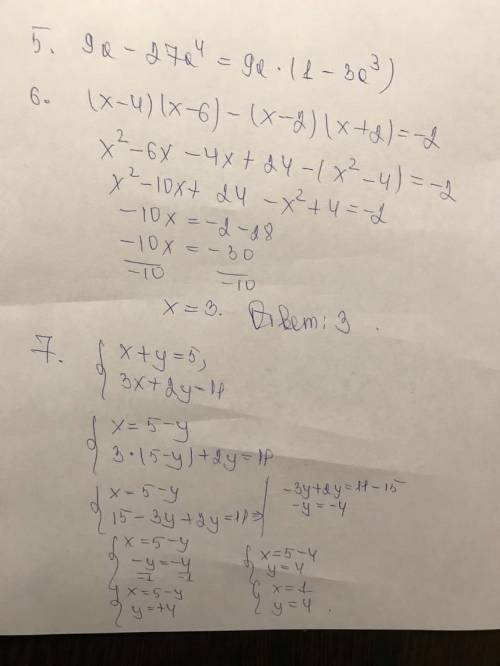 5. 9a - 27a⁴ = 9a · (1 - 3a³)
6. (x-4)(x-6) - (x-2)(x+2) = -2
x² - 6x - 4x + 24 - (x² - 4) = -2
x² - 10x + 24 - x² + 4 = -2
-10x = -2 - 28
-10x = -30
-10 -10
x = 3. Ответ: 3.
7. { x + y = 5,
3x + 2y = 11
{ x = 5 - y
3 · (5 - y) + 2y = 11
{ x = 5 - y
15 - 3y + 2y = 11 ⇒
| -3y + 2y = 11 - 15
-y = -4
{ x = 5 - y
-y = -4
-1 -1
{ x = 5 - y
y = +4
{ x = 5 - 4
y = 4
{ x = 1
y = 4.